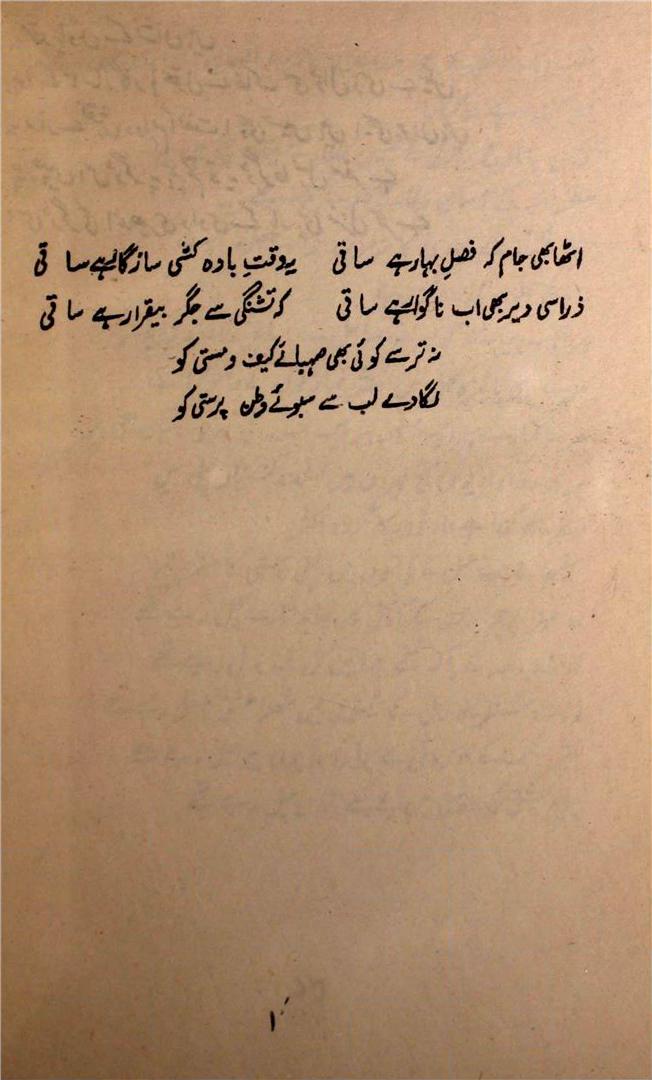 اٹھا بھی جام کہ فصلِ بہار ہے ساقی یہ وقتِ بادہ کشی سازگار ہے ساقی
ذرا سی دیر بھی اب ناگوار ہے ساقی کہ تشنگی سے جگر بیقرار ہے ساقی
نہ ترسے کوئی بھی صہبائے کیف و مستی کو
لگا دے لب سے سبوئے وطن پرستی کو